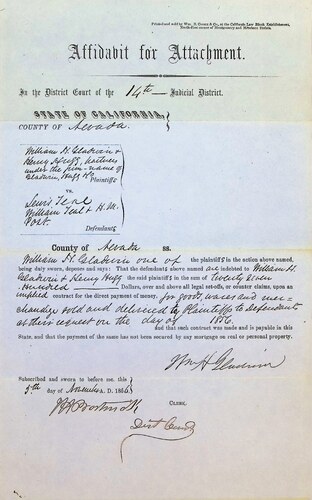 Printed and sold by Wm. B. Cooke & Co., at the California Law Blank Establishment,
North-East corner of Montgomery and Merchant Streets.
Affidavit for Attachment.
In the District Court of the 14th Judicial District.
STATE OF CALIFORNIA,
COUNTY OF Nevada.
William H. Gladwin &
Henry Hugg, partners
under the firm-name of
Gladwin, Hugg & Co. Plaintiffs
vs.
Lewis Teal
William Teal & H. M.
Post. Defendants
County of Nevada ss.
William H. Gladwin one of the plaintiffs in the action above named,
being duly sworn, deposes and says: That the defendants above named are indebted to William H.
Gladwin & Henry Hugg the said plaintiffs in the sum of Twenty Seven
Hundred Dollars, over and above all legal set-offs, or counter claims, upon an
implied contract for the direct payment of money, for goods, wares and mer-
chandize sold and delivered by Plaintiffs to Defendants
at their request on the day of 1856
and that such contract was made and is payable in this
State, and that the payment of the same has not been secured by any mortgage on real or personal property.
Wm H Gladwin
Subscribed and sworn to before me, this
5th day of November A. D. 1856
Clerk.
Dist Court